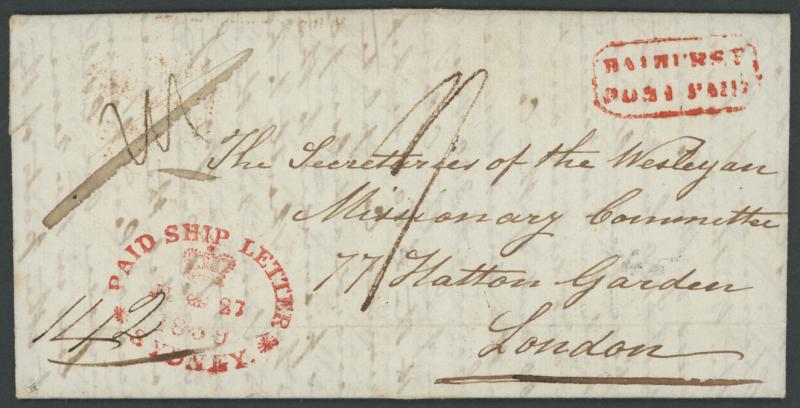 BATHURST
POST PAID
The Secretaries of the Wesleyan
Missionary Committee
77 Hatton Garden
London
PAID SHIP LETTER
27
1839
SYDNEY.
142